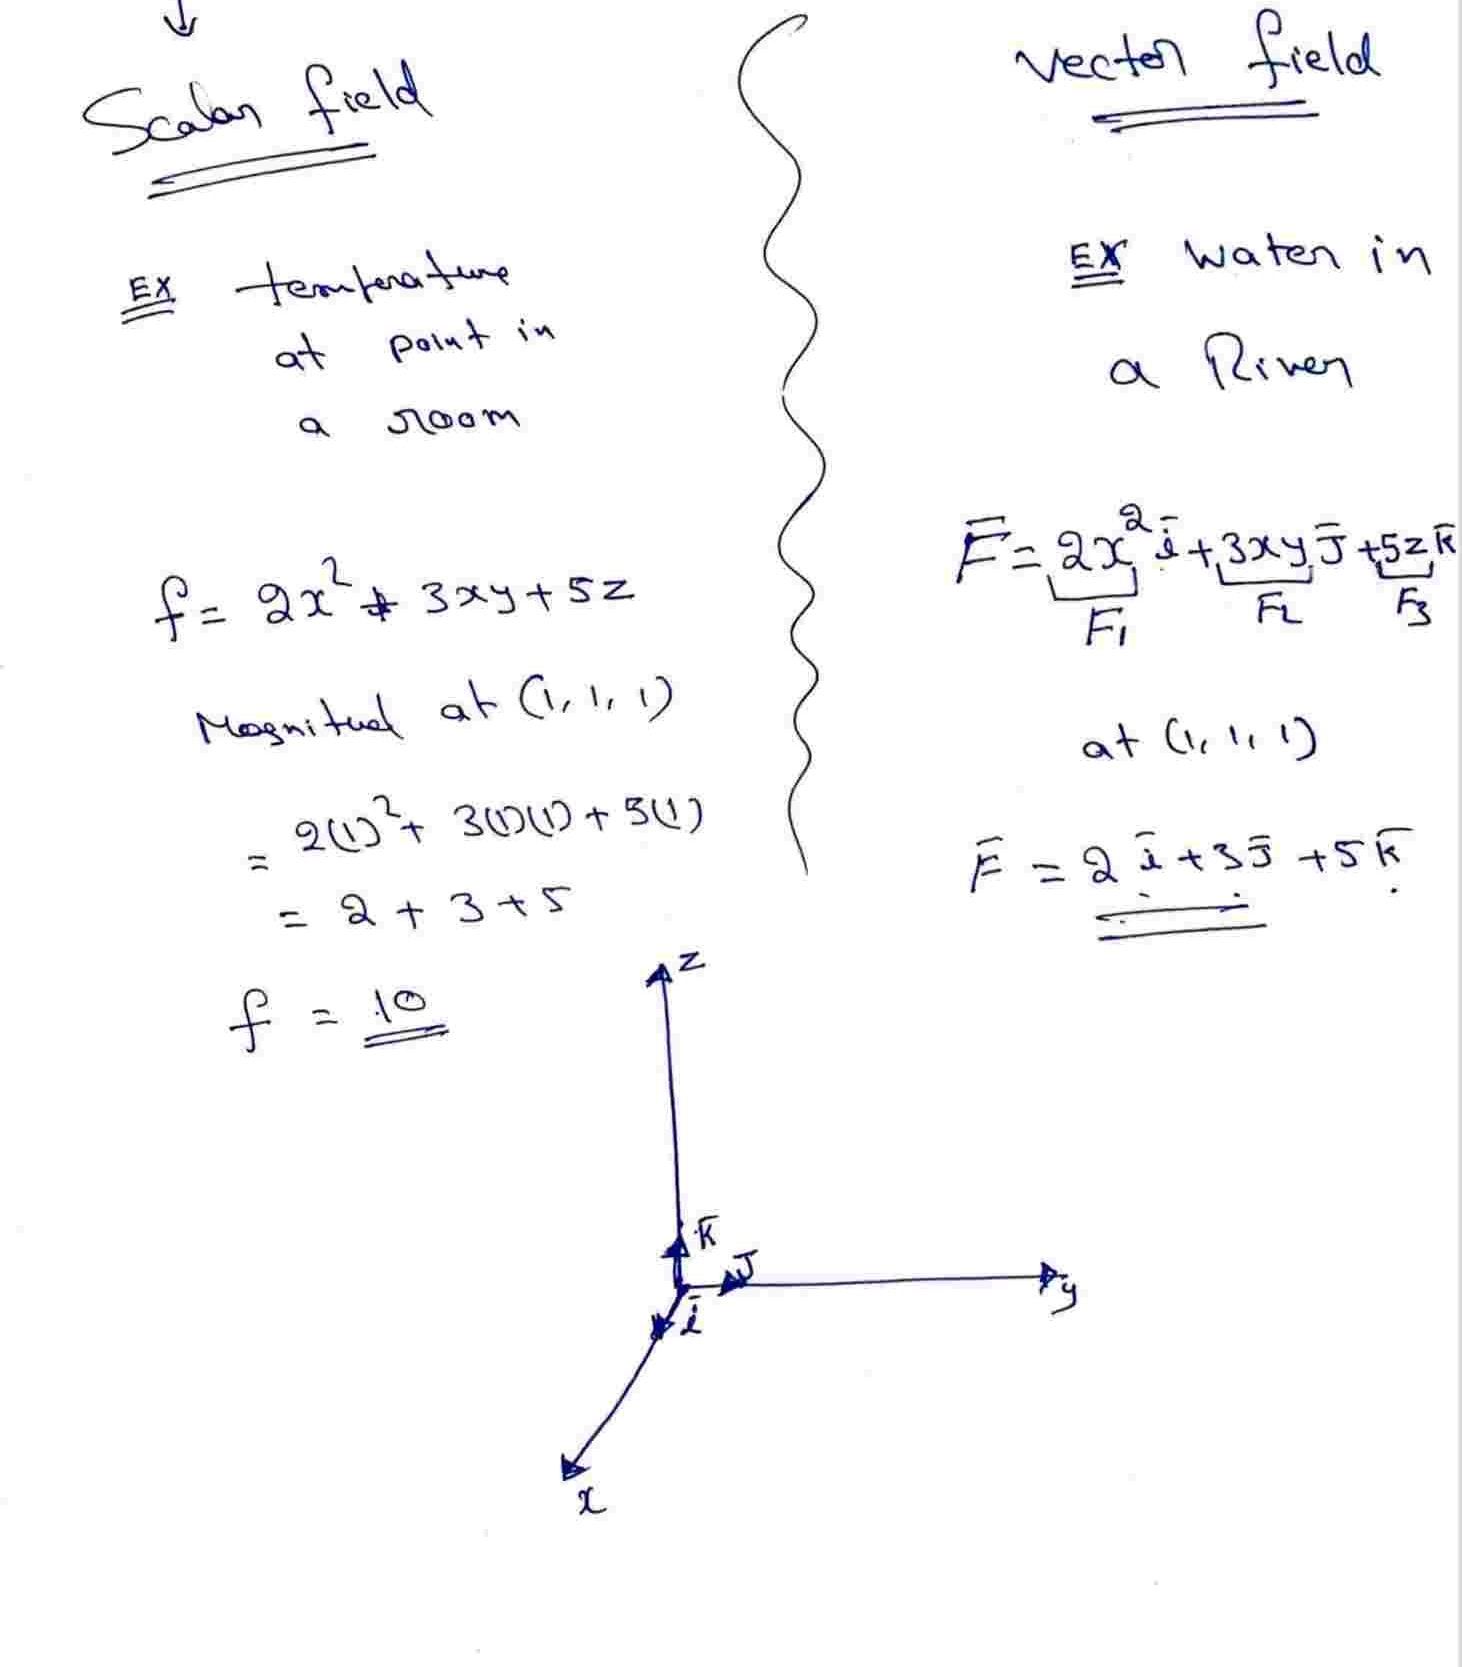 Scalar field
EX temperature
at point in
a room
f = 2x² + 3xy + 5z
Magnitud at (1, 1, 1)
= 2(1)² + 3(1)(1) + 5(1)
= 2 + 3 + 5
f = 10
vector field
EX water in
a River
F̄ = 2x² ī + 3xy J̄ + 5z k̄
F₁ F₂ F₃
at (1, 1, 1)
F̄ = 2 ī + 3 J̄ + 5 k̄
z
k̄
J
ī
y
x